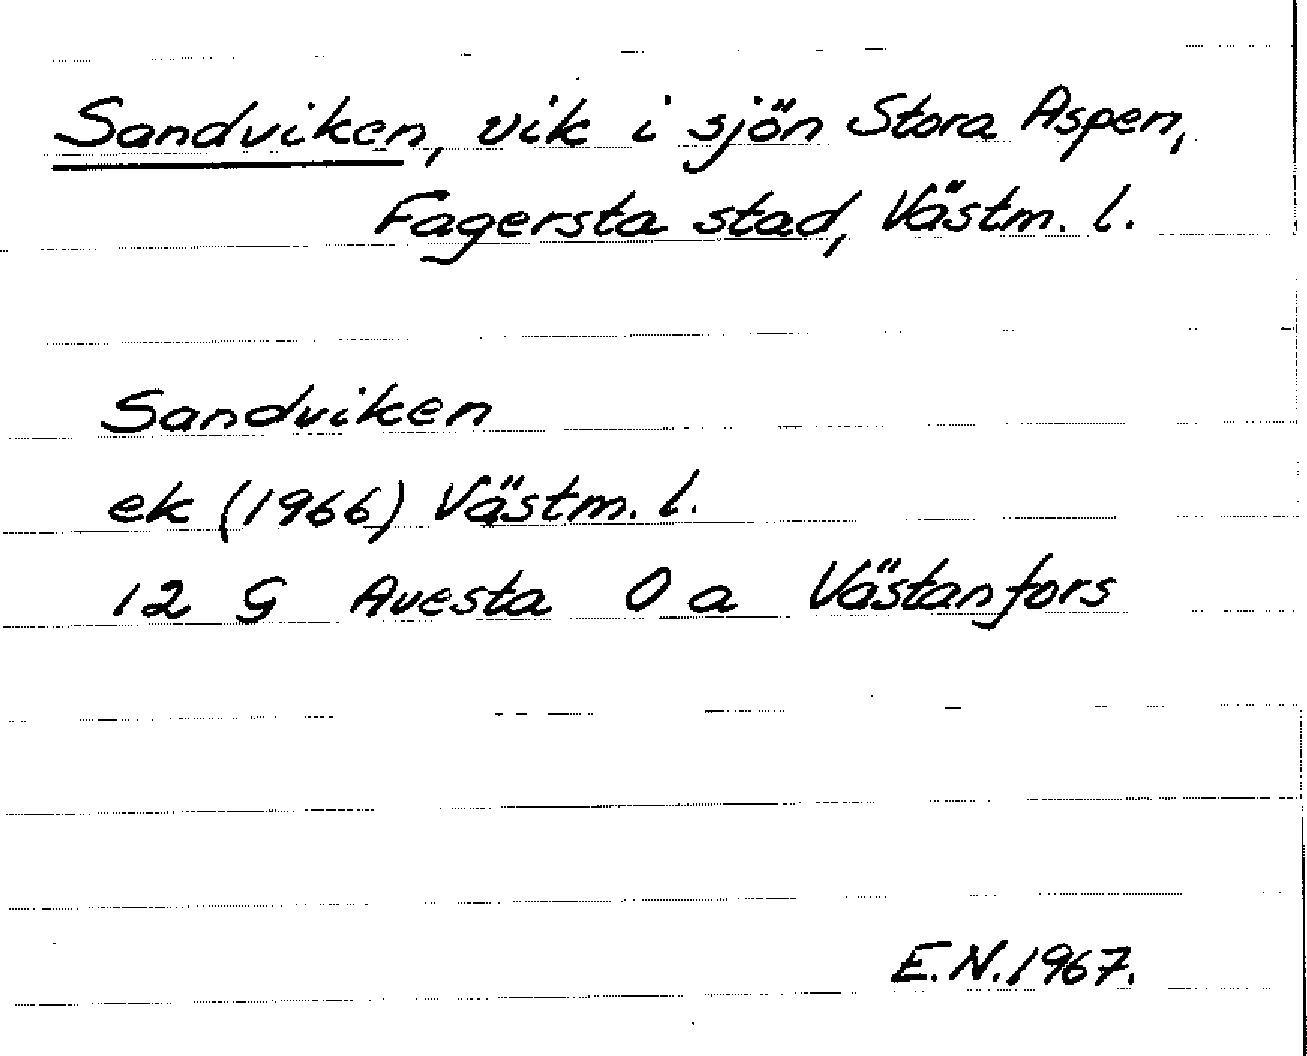 Sandviken, vik i sjön Stora Aspen,
Fagersta stad, Västm. l.
Sandviken
ek (1966) Västm. l.
12 G Avesta 0 a Västanfors
E.N. 1967.